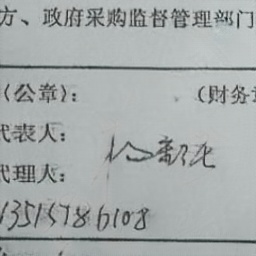 方、政府采购监督管理部门
（公章）： （财务章
代表人：
代理人：
13515786108